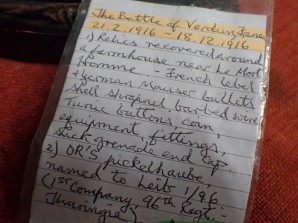 The Battle of Verdun, France
21.2.1916 - 18.12.1916
1) Relics recovered around
a farmhouse near Le Mort
Homme - French Lebel
+ German Mauser bullets
shell shrapnel, barbed wire
Tunic buttons, coin,
equipment, fittings,
stick grenade end cap.
2) OR's pickelhaube,
named to Leib 1/96
(1st Company, 96th Regt -
Thuringia)